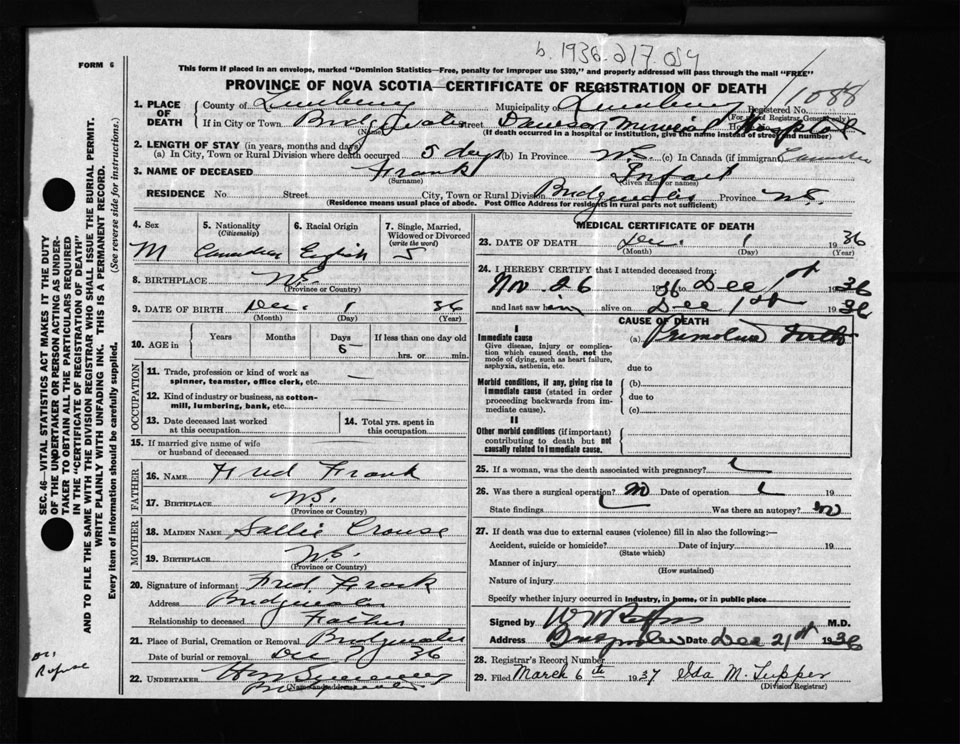 b. 1936-217.054
FORM 6
This form if placed in an envelope, marked "Dominion Statistics—Free, penalty for improper use $300," and properly addressed will pass through the mail "FREE"
PROVINCE OF NOVA SCOTIA—CERTIFICATE OF REGISTRATION OF DEATH
1088
1. PLACE OF DEATH
County of Lunenburg Municipality of Lunenburg Registered No.
(For use of Registrar General only)
If in City or Town Bridgewater Street Dawson Memorial Hospital
(Name) (If death occurred in a hospital or institution, give name instead of street and number)
2. LENGTH OF STAY (in years, months and days)
(a) In City, Town or Rural Division where death occurred 5 days (b) In Province N.S. (c) In Canada (if immigrant)
3. NAME OF DECEASED Frank Infant
(Surname) (Given name or names)
RESIDENCE No. Street City, Town or Rural Division Bridgewater Province N.S.
(Residence means usual place of abode. Post Office Address for residents in rural parts not sufficient)
4. Sex
M
5. Nationality
(Citizenship)
Canadian
6. Racial Origin
English
7. Single, Married, Widowed or Divorced
(write the word)
S
8. BIRTHPLACE N.S.
(Province or Country)
9. DATE OF BIRTH Dec. 1 36
(Month) (Day) (Year)
10. AGE in
Years Months Days If less than one day old
hrs. or min.
OCCUPATION
11. Trade, profession or kind of work as spinner, teamster, office clerk, etc. —
12. Kind of industry or business, as cotton-mill, lumbering, bank, etc. —
13. Date deceased last worked at this occupation
14. Total yrs. spent in this occupation
15. If married give name of wife or husband of deceased
FATHER
16. NAME Fred Frank
17. BIRTHPLACE N.S.
(Province or Country)
MOTHER
18. MAIDEN NAME Sallie Crouse
19. BIRTHPLACE N.S.
(Province or Country)
20. Signature of informant Fred Frank
Address Bridgewater
Relationship to deceased Father
21. Place of Burial, Cremation or Removal Bridgewater
Date of burial or removal Dec 36
22. UNDERTAKER
(Name and address)
MEDICAL CERTIFICATE OF DEATH
23. DATE OF DEATH Dec. 1 1936
(Month) (Day) (Year)
24. I HEREBY CERTIFY that I attended deceased from:
Nov. 26 1936 to Dec 1st 1936
and last saw him alive on Dec 1st 1936
CAUSE OF DEATH
I
Immediate cause
Give disease, injury or complication which caused death, not the mode of dying, such as heart failure, asphyxia, asthenia, etc.
(a) Premature birth
due to
Morbid conditions, if any, giving rise to immediate cause (stated in order proceeding backwards from immediate cause).
(b)
due to
(c)
II
Other morbid conditions (if important) contributing to death but not causally related to immediate cause.
25. If a woman, was the death associated with pregnancy?
26. Was there a surgical operation? no Date of operation 19
State findings Was there an autopsy? no
27. If death was due to external causes (violence) fill in also the following:—
Accident, suicide or homicide? Date of injury 19
(State which)
Manner of injury
(How sustained)
Nature of injury
Specify whether injury occurred in industry, in home, or in public place
Signed by M.D.
Address Bridgewater Date Dec 21st 1936
28. Registrar's Record Number
29. Filed March 6th 1937 Ida M. Tupper
(Division Registrar)
SEC. 46—VITAL STATISTICS ACT MAKES IT THE DUTY
OF THE UNDERTAKER OR PERSON ACTING AS UNDER-
TAKER TO OBTAIN ALL THE PARTICULARS REQUIRED
IN THE "CERTIFICATE OF REGISTRATION OF DEATH"
AND TO FILE THE SAME WITH THE DIVISION REGISTRAR WHO SHALL ISSUE THE BURIAL PERMIT.
WRITE PLAINLY WITH UNFADING INK. THIS IS A PERMANENT RECORD.
Every item of information should be carefully supplied. (See reverse side for instructions.)